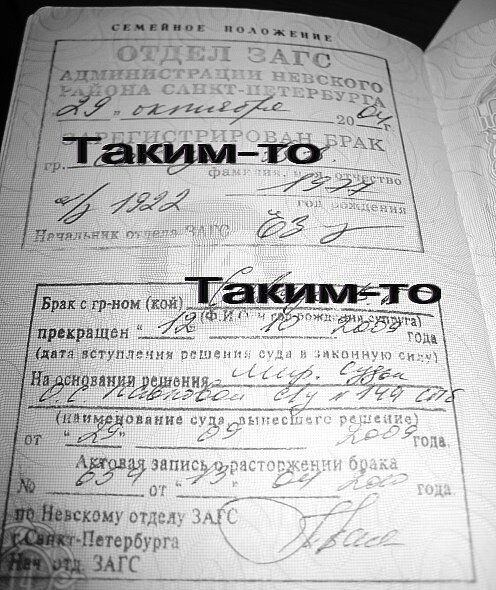 СЕМЕЙНОЕ ПОЛОЖЕНИЕ
ОТДЕЛ ЗАГС
АДМИНИСТРАЦИИ НЕВСКОГО
РАЙОНА САНКТ-ПЕТЕРБУРГА
29 " октября 2004 г.
ЗАРЕГИСТРИРОВАН БРАК
гр. Таким-то
фамилия, имя, отчество
1977
год рождения
а/з 1922
Начальник отдела ЗАГС
Таким-то
Брак с гр-ном (кой)
(Ф.И.О. и год рождения супруга)
прекращен " 12 " 10 2009 года
(дата вступления решения суда в законную силу)
На основании решения мир. судьи
с/у № 149 СПб
(наименование суда, вынесшего решение)
от " 29 " 09 2009 года.
Актовая запись о расторжении брака
№ от " 13 " года
по Невскому отделу ЗАГС
г.Санкт-Петербурга
Нач. отд. ЗАГС